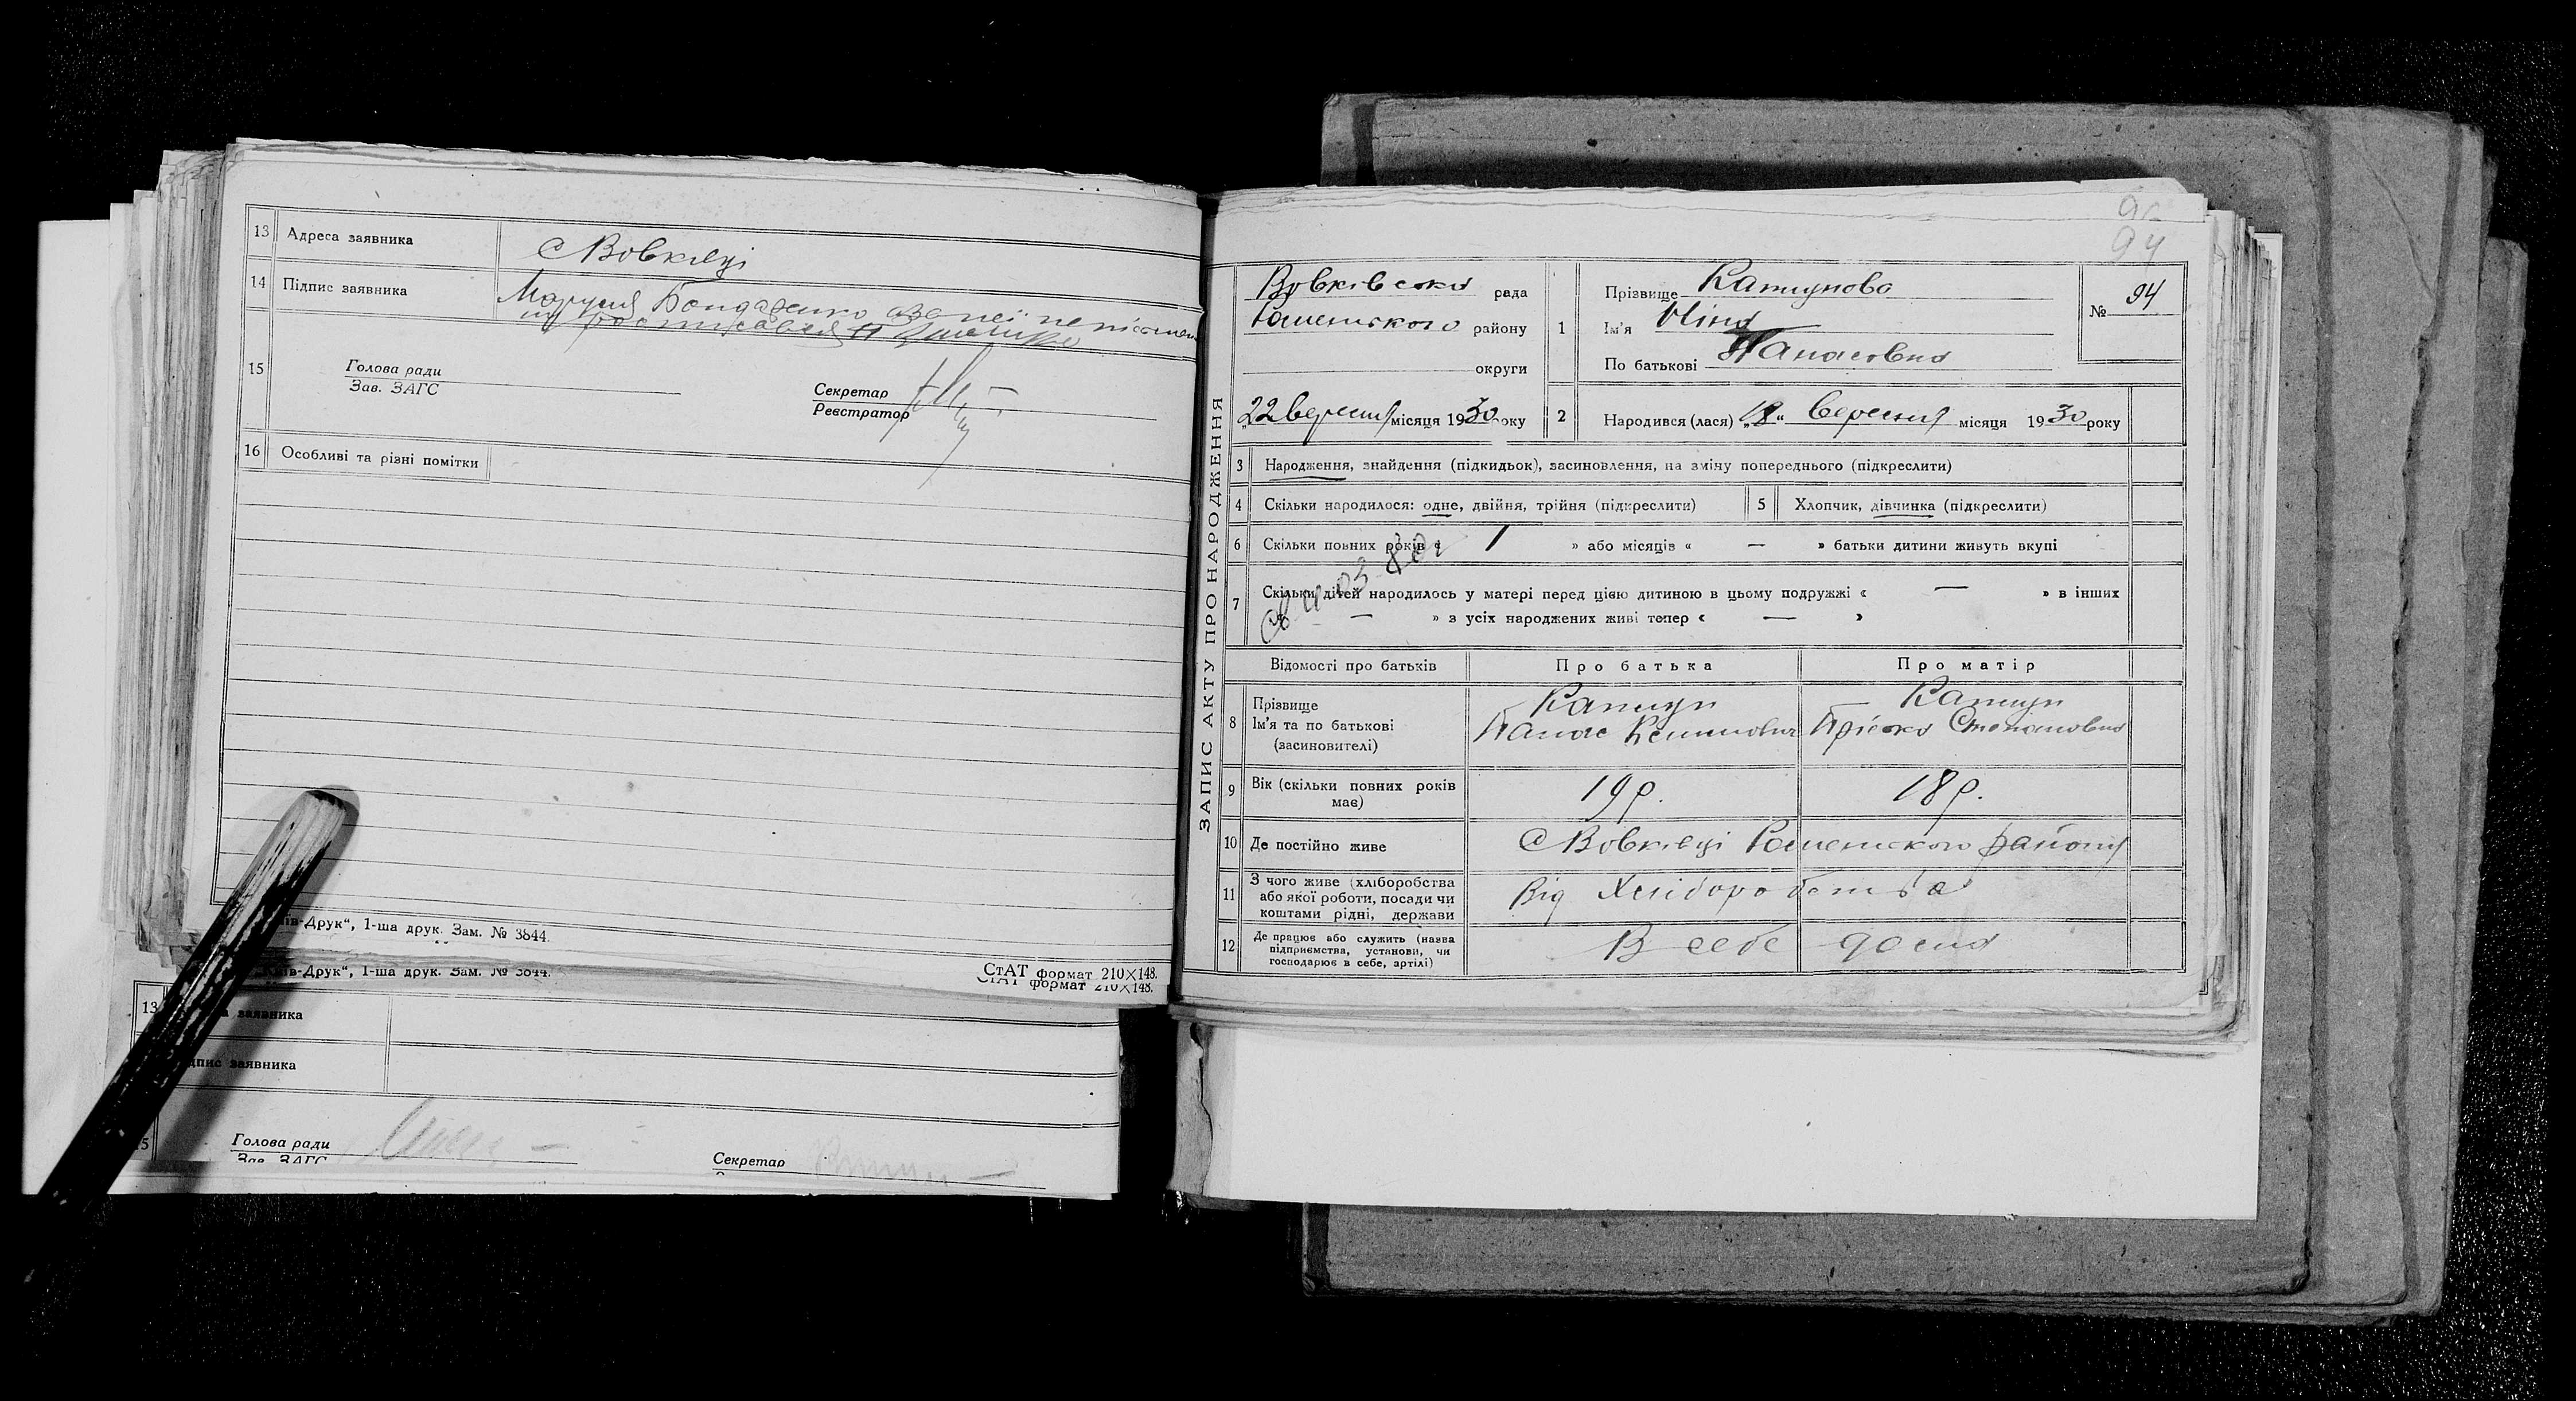 13 Адреса заявника с Вовківці
14 Підпис заявника Маруся Бондаренко а за неї неписьмен
ну росписався
15 Голова ради
Зав. ЗАГС
Секретар
Реєстратор
16 Особливі та різні помітки
їв-Друк“, 1-ша друк. Зам. № 3844.
їв-Друк“, 1-ша друк. Зам. № 3844.
СтАТ формат 210×148.
СтАТ формат 210×148.
13 заявника
дпис заявника
15 Голова ради
Зав. ЗАГС
Секретар
96
94
ЗАПИС АКТУ ПРО НАРОДЖЕННЯ
Вовківська рада
Роменського району
округи
„22 вересня місяця 1930 року
1 Прізвище
Ім'я Ніна
По батькові Панасовна
№ 94
2 Народився (лася) „18“ вересня місяця 1930 року
3 Народження, знайдення (підкидьок), засиновлення, на зміну попереднього (підкреслити)
4 Скільки народилося: одне, двійня, трійня (підкреслити)
5 Хлопчик, дівчинка (підкреслити)
6 Скільки повних років « 1 » або місяців « — » батьки дитини живуть вкупі
7 Скільки дітей народилось у матері перед цією дитиною в цьому подружжі « — » в інших
« — » з усіх народжених живі тепер « — »
Відомості про батьків Про батька Про матір
8 Прізвище
Ім'я та по батькові
(засиновителі)
Панас
Пріська Степановна
9 Вік (скільки повних років
має)
19 р. 18 р.
10 Де постійно живе с Вовківці Роменського району
11 З чого живе (хліборобства
або якої роботи, посади чи
коштами рідні, держави
Від Хліборобства
12 Де працює або служить (назва
підприємства, установи, чи
господарює в себе, артілі)
В себе дома